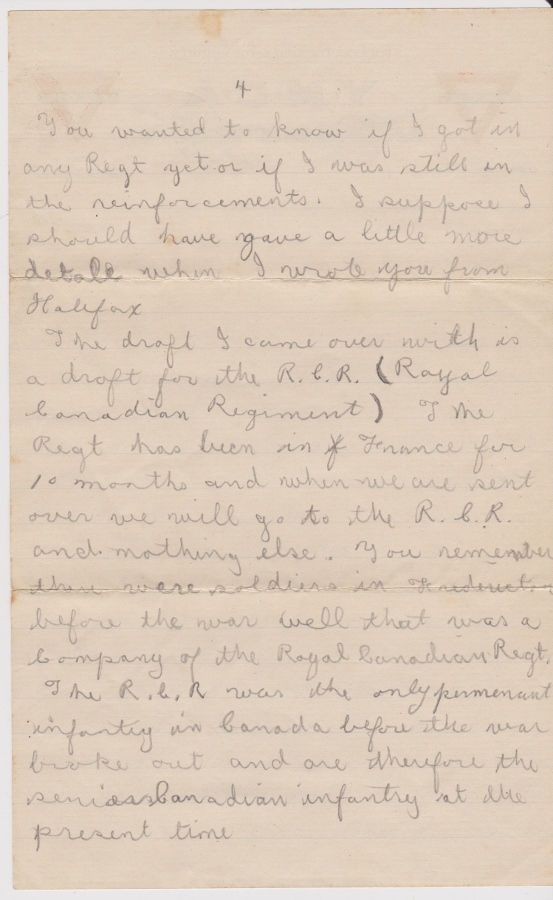 4
You wanted to know if I got in
any Regt yet or if I was still in
the reinforcements. I suppose I
should have gave a little more
detall when I wrote you from
Halifax
The draft I came over with is
a draft for the R.C.R. (Royal
Canadian Regiment) The
Regt has been in France for
10 months and when we are sent
over we will go to the R.C.R.
and nothing else. You remember
there were soldiers in
before the war well that was a
Company of the Royal Canadian Regt.
The R.C.R was the only permenant
infantry in Canada before the war
broke out and are therefore the
Canadian infantry at the
present time